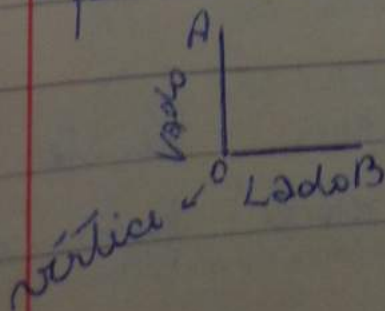 A
Lado
O
Lado B
vértice